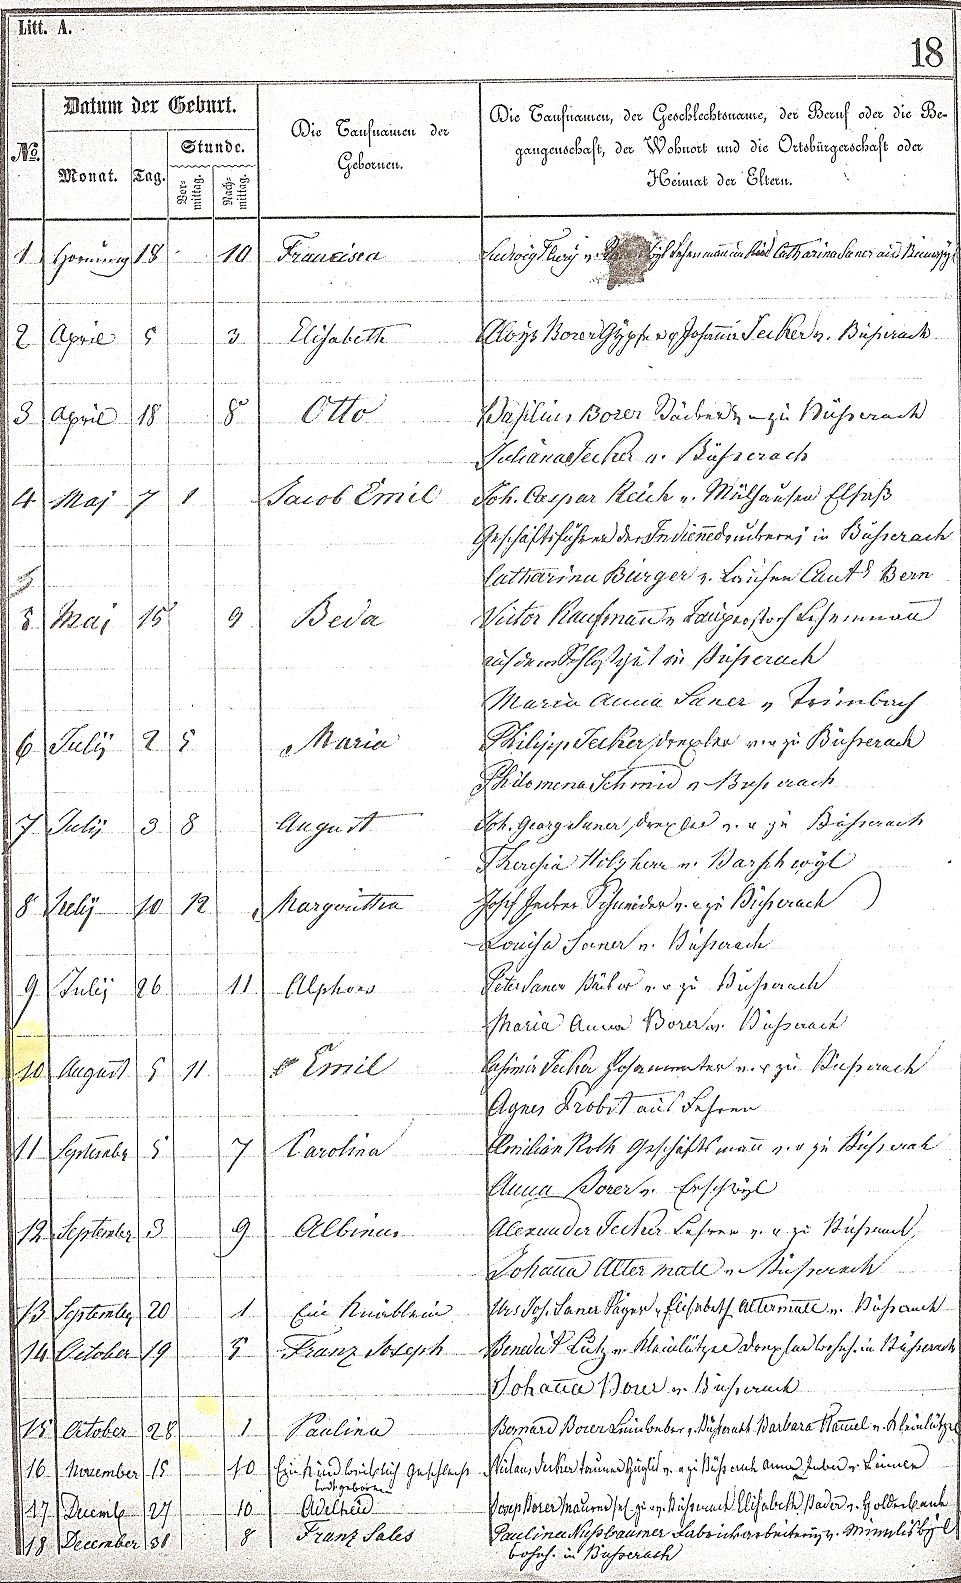 Litt. A.
18
Datum der Geburt.
No.
Monat.
Tag.
Stunde.
Vor-
mittag.
Nach-
mittag.
Die Taufnamen der
Gebornen.
Die Taufnamen, der Geschlechtsname, der Beruf oder die Be-
gangenschaft, der Wohnort und die Ortsbürgerschaft oder
Heimat der Eltern.
1 Hornung 18 10 Francisca Ludwig Flury v. Lehenmann im Catharina Saner aus
2 April 5 3 Elisabeth Aloys Borer Gypser Johanna Jecker v. Büsserach
3 April 18 8 Otto Basilius Borer Bäcker v. u zu Büsserach
Juliana Jecker v. Büsserach
4 Maj 7 1 Jacob Emil Joh. Caspar Reich v. Mülhausen Elsaß
Geschäftsführer der Indiennedruckerei in Büsserach
Catharina Burger v. Laufen Cant. Bern
5
5 Maj 15 9 Beda Victor Kaufmann v. Lehenmann
auf dem Schloßgut in Büsserach
Maria Anna Saner v Trimbach
6 Julij 2 5 Maria Philipp Jecker Drexler v. u zu Büsserach
Philomena Schmid v Busserach
7 Julij 3 8 August Joh. Georg Saner Drexler v. u zu Büsserach
Theresia Holzherr v. Barschwyl
8 Julij 10 12 Margaritha Josef Jecker Schneider v. u zu Büsserach
Louisa Saner v. Büsserach
9 Julij 26 11 Alphons Peter Saner v. u zu Büsserach
Maria Anna Borer v. Büsserach
10 August 5 11 Emil Casimir Jecker v. u zu Büsserach
Agnes Probst aus Fehren
11 September 5 7 Carolina Emilian Roth Geschäftsmann v. u zu Büsserach
Anna Borer v. Erschwyl
12 September 3 9 Albinus Alexander Jecker Lehrer v. u zu Büsserach
Johanna Altermatt v Büsserach
13 September 20 1 Ein Knäblein Urs Jos. Saner Jäger v Elisabeth Altermatt v. Büsserach
14 October 19 5 Franz Joseph Benedict Lutz v. Kleinlützel Drexler wohnh. in Büsserach
Johanna Borer v. Büsserach
15 October 28 1 Paulina Bernard Borer Leinweber v. Büsserach Barbara Hammel v. Kleinlützel
16 November 15 10 Ein Kind weiblich Geschlechts Niklaus Jecker v. u zu Büsserach Anna
todtgeboren
17 Decemb 27 10 Adelheid Josep Borer Maurer v. Büsserach Elisabeth Bader v. Holderbank
18 December 31 8 Franz Sales Paulina Nussbaumer Fabrickarbeiterin v. Mümliswyl
wohnh. in Busserach